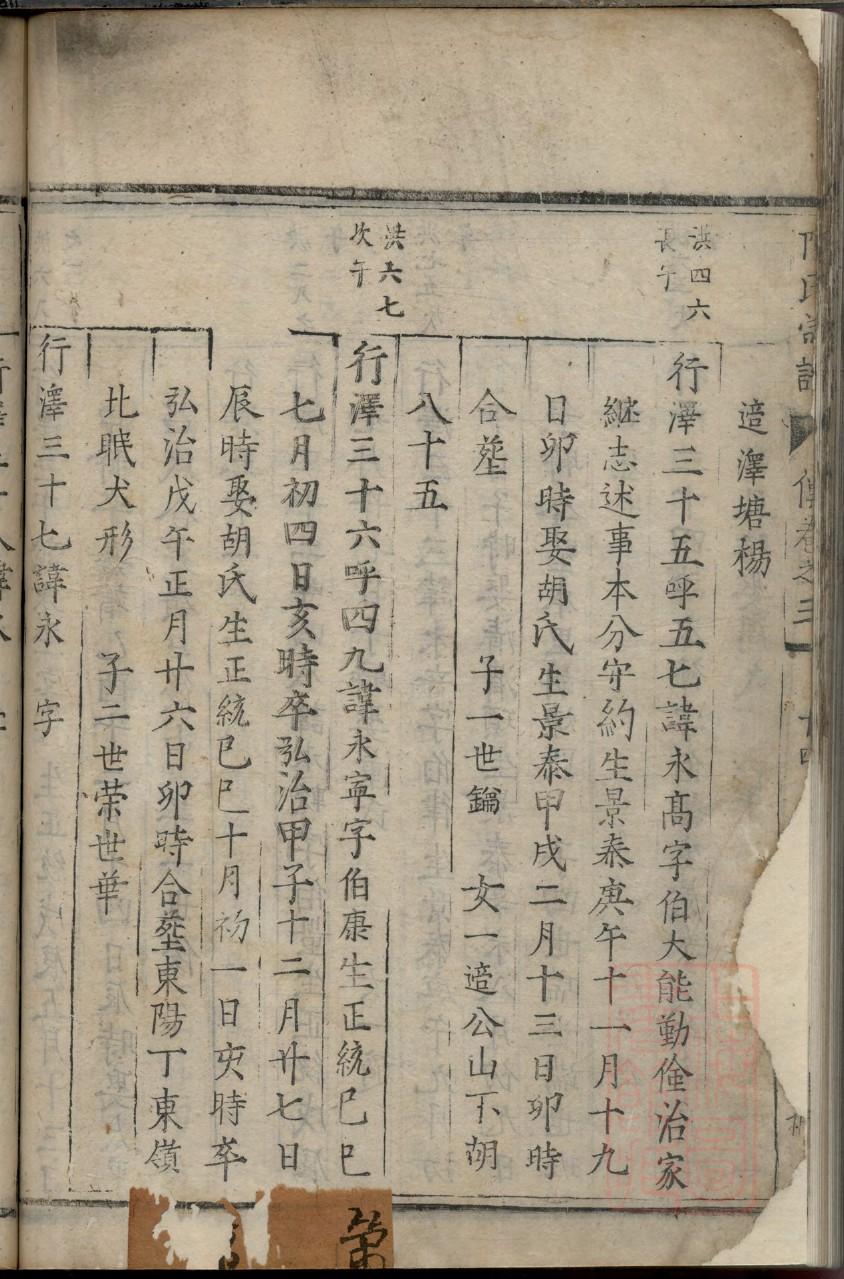 適澤塘楊
洪四六
長子
行澤三十五呼五七諱永高字伯大能勤儉治家
継志述事本分守約生景泰庚午十一月十九
日卯時娶胡氏生景泰甲戌二月十三日卯時
合塟 子一世鑰 女一適公山下胡
八十五
洪六七
次子
行澤三十六呼四九諱永寧字伯康生正統己巳
七月初四日亥時卒弘治甲子十二月廿七日
辰時娶胡氏生正統己巳十月初一日亥時卒
弘治戊午正月廿六日卯時合塟東陽丁東嶺
比眠犬形 子二世荣世華
行澤三十七諱永 字